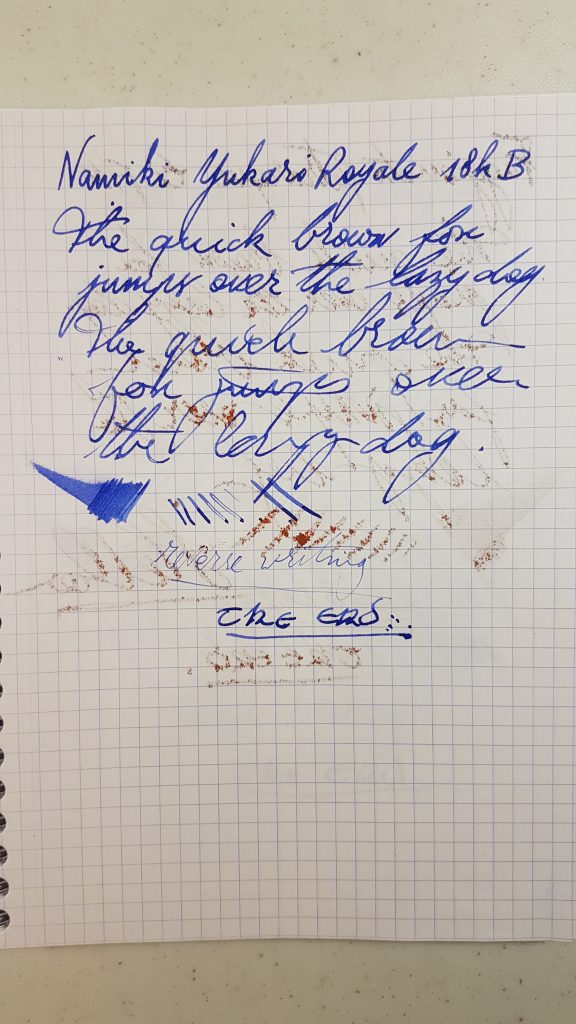 Namiki Yukari Royale 18k B
The quick brown fox
jumps over the lazy dog
The quick brown
fox jumps over
the lazy dog.
reverse writing
THE END